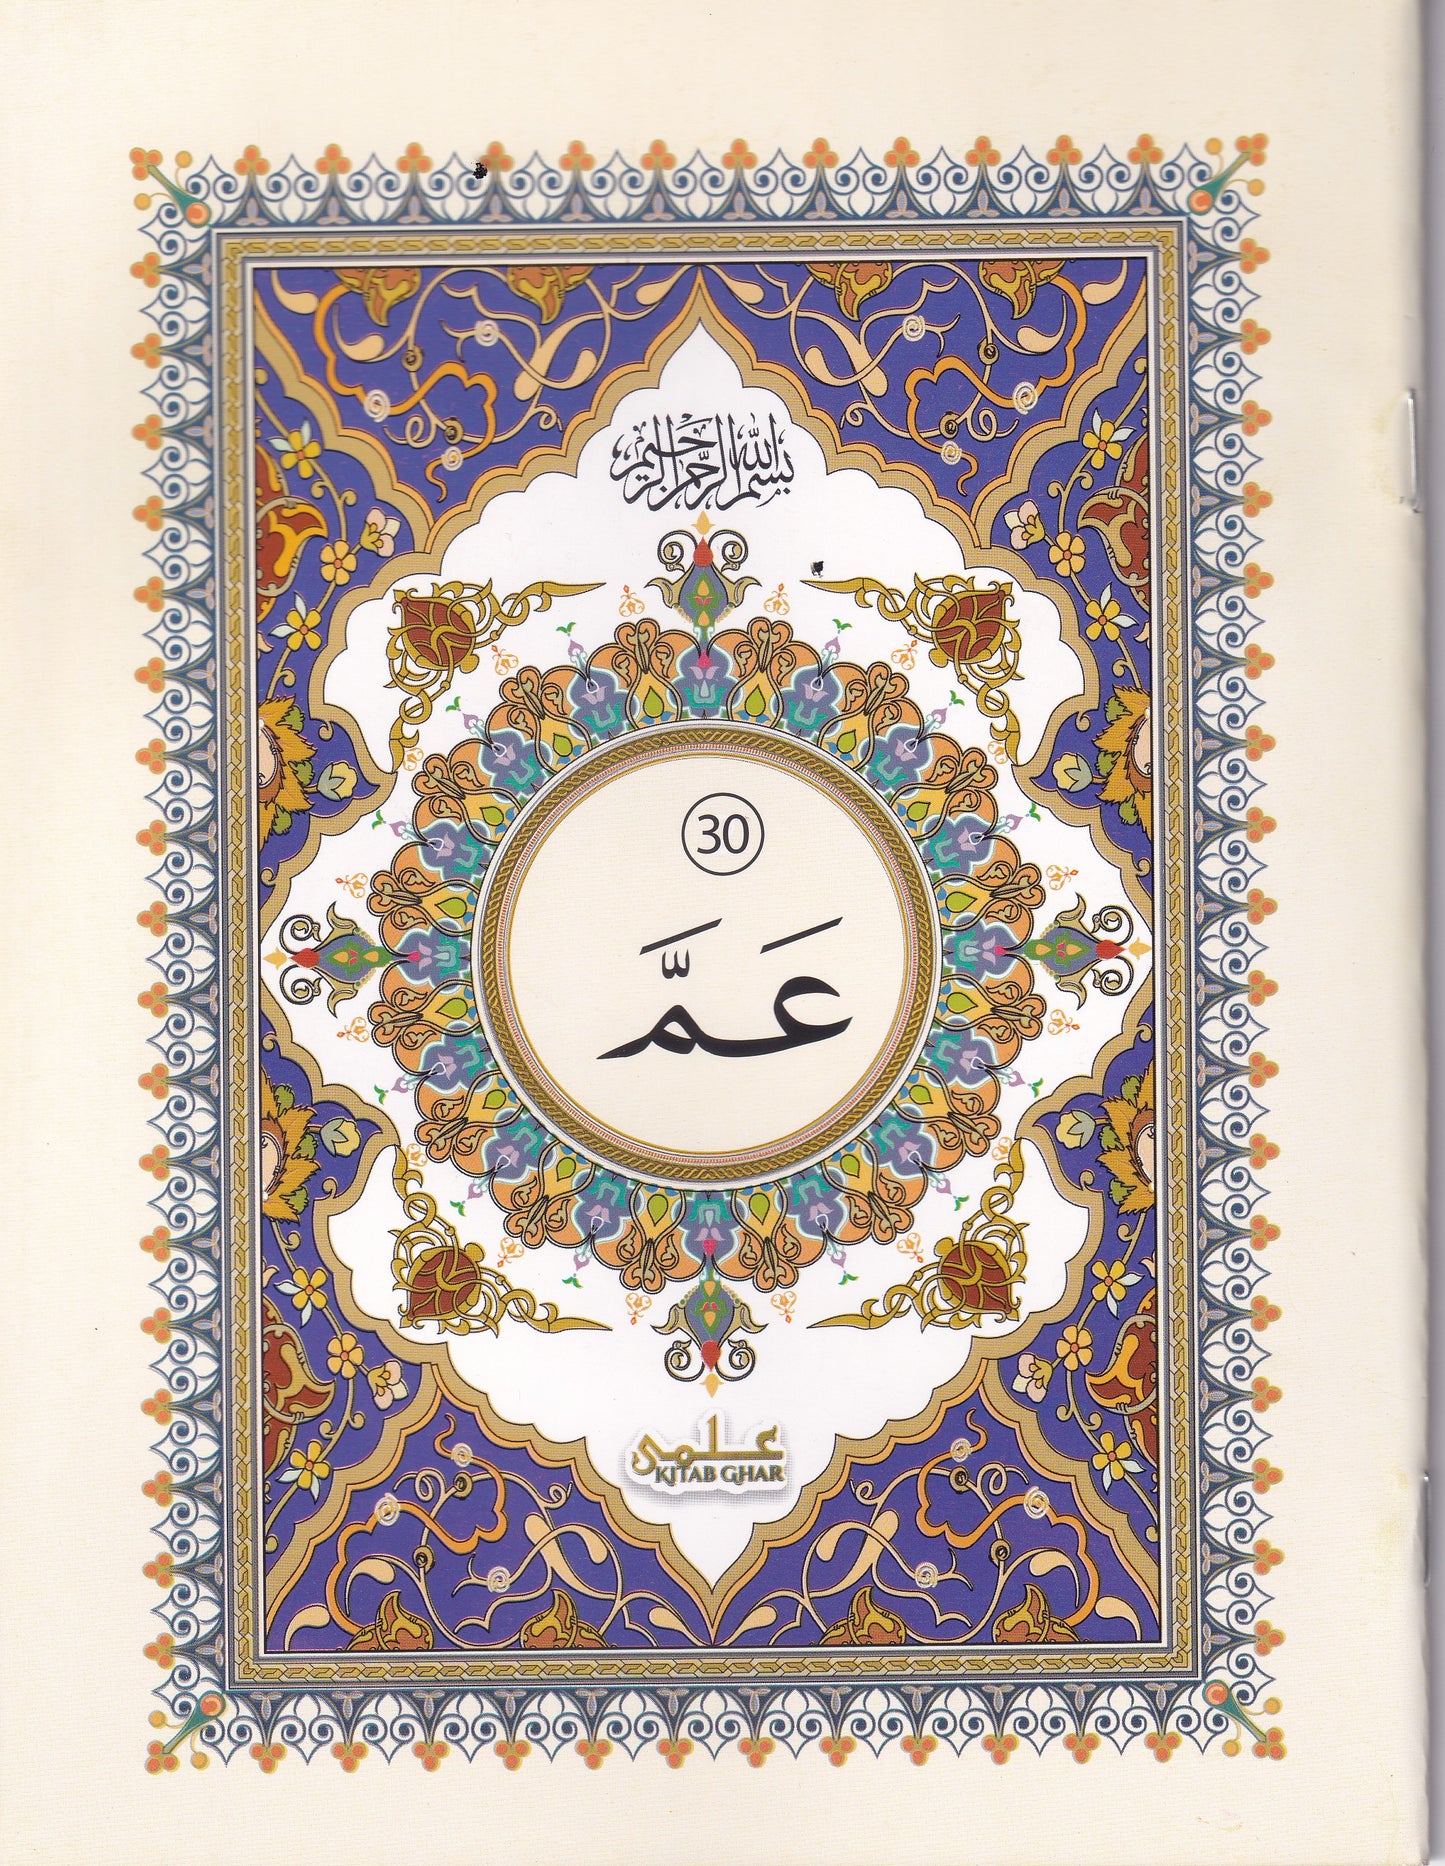 بسم الله الرحمن الرحيم
30
عَمَّ
علمی
KITAB GHAR